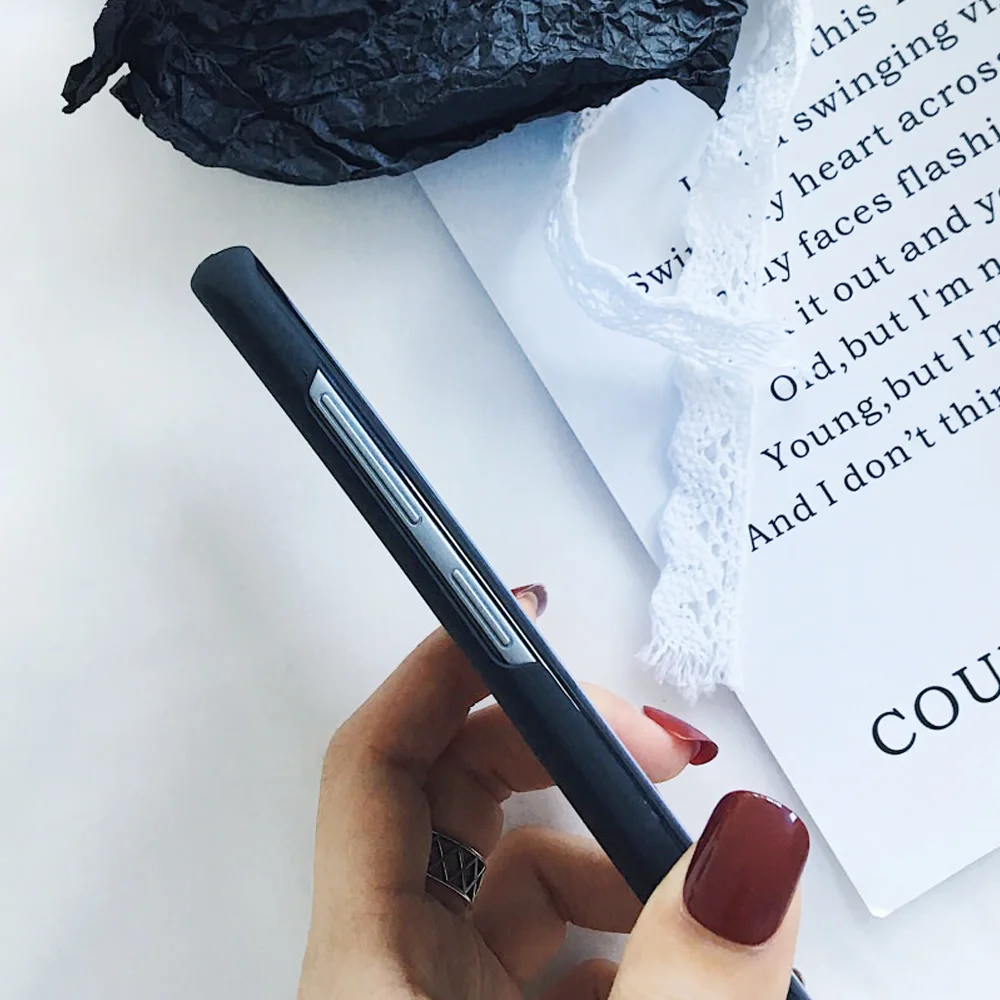 this
swinging vi
y heart across
y faces flashi
it out and y
Old,but I'm n
Young,but I'm
And I don't thin
COU